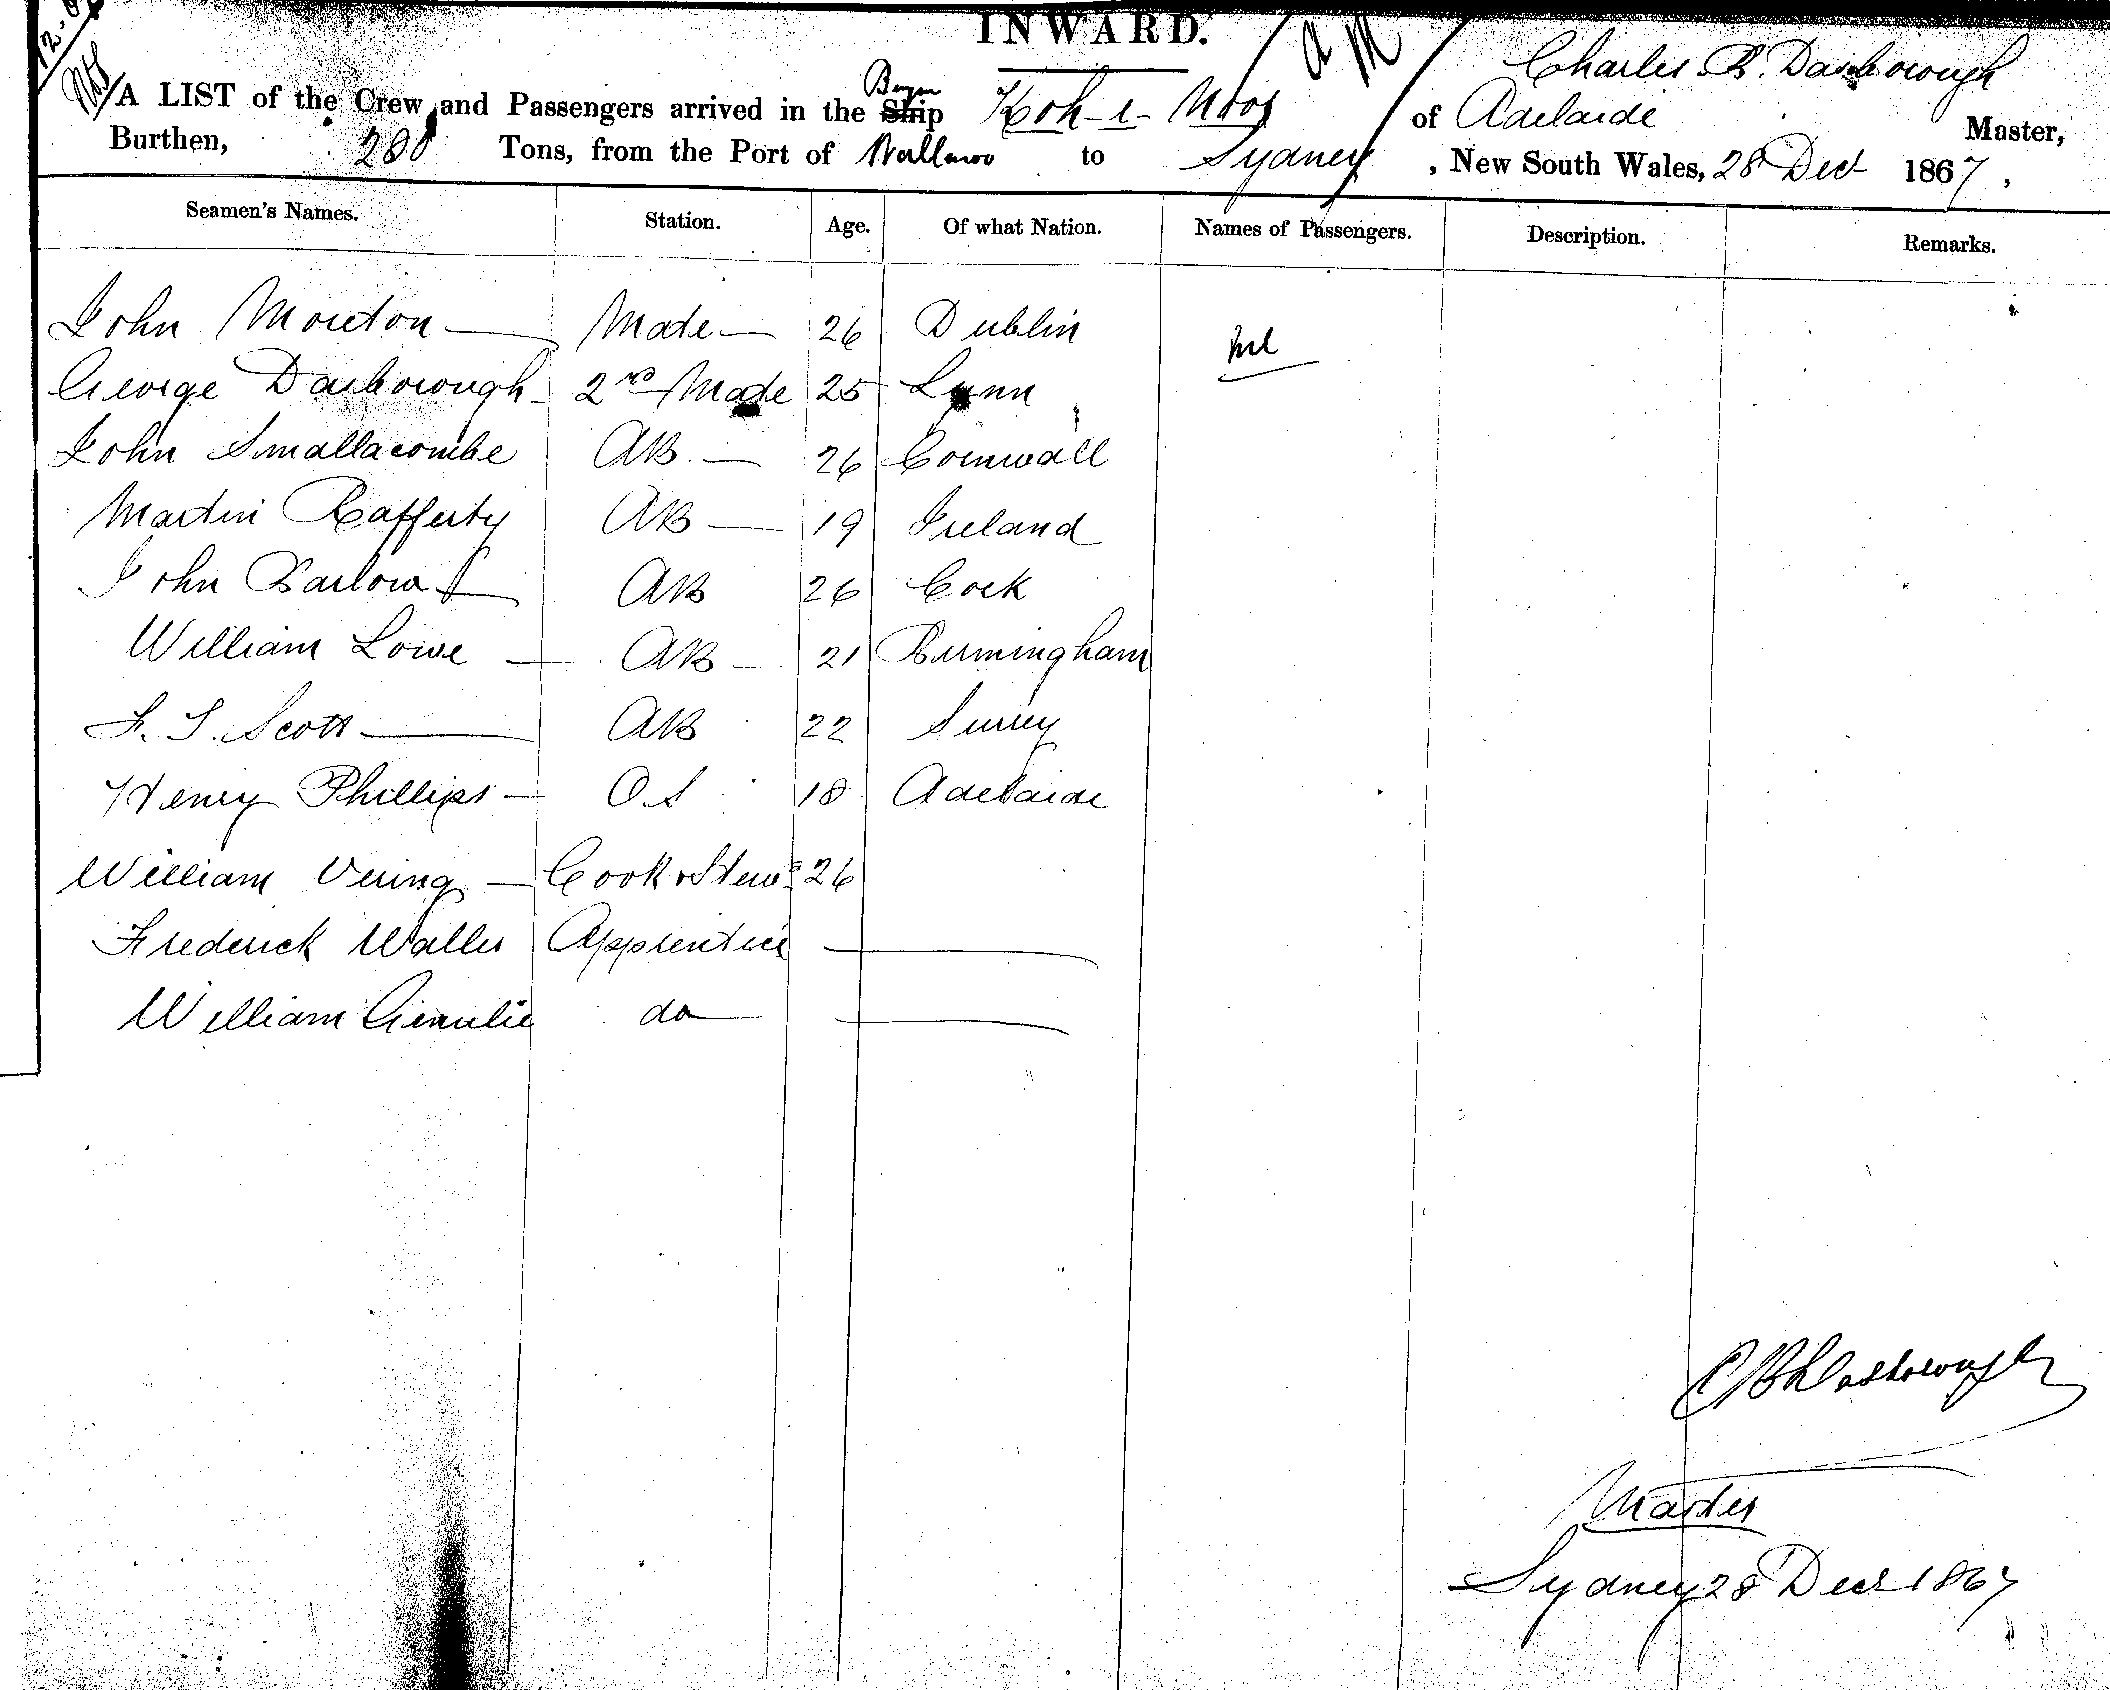 INWARD.
A LIST of the Crew and Passengers arrived in the Ship Koh-i-Noor of Adelaide Charles B. Dasborough Master,
Burthen, 280 Tons, from the Port of Wallaroo to Sydney, New South Wales, 28 Dec 1867,
Seamen's Names. Station. Age. Of what Nation. Names of Passengers. Description. Remarks.
John Moreton Mate 26 Dublin
George Dasborough 2nd Mate 25 Lynn
John Smallacombe AB 26 Cornwall
Martin Rafferty AB 19 Ireland
John Barlow AB 26 Cork
William Lowe AB 21 Birmingham
F. T. Scott AB 22 Surrey
Henry Phillips O.S 18 Adelaide
William Vering Cook & Stewd 26
Frederick Waller Apprentice
William do
C B Dasborough
Master
Sydney 28 Decr 1867